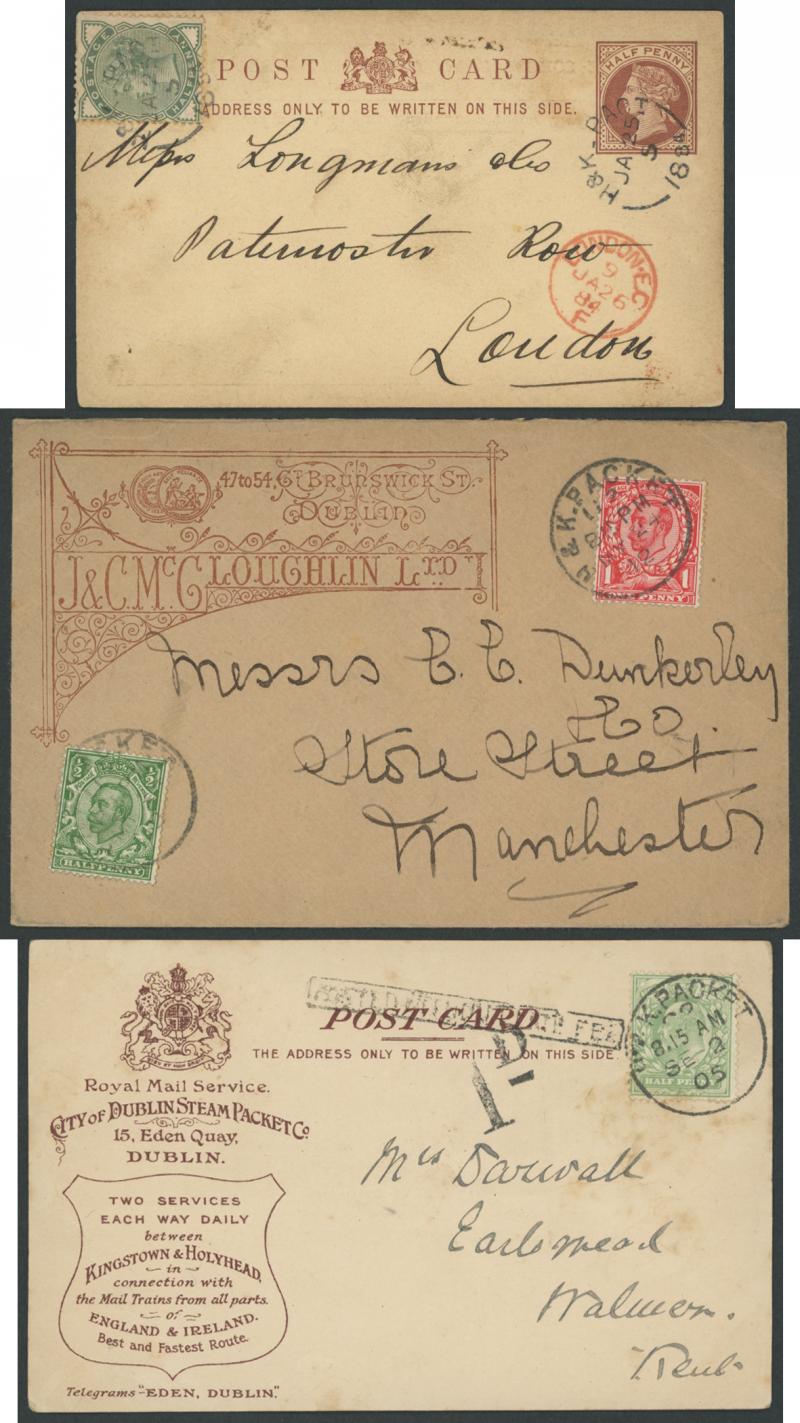 POSTAGE
HALF PENNY
POST CARD
ADDRESS ONLY TO BE WRITTEN ON THIS SIDE.
HALF PENNY
H & K. PAC
JA 25
S
1884
Messrs Longmans &Co
Paternoster Row
LONDON·E.C
9
JA 26
84
F
London
47 to 54, Gt. BRUNSWICK ST.
DUBLIN
J & C. McCLOUGHLIN LTD
H & K. PACKET
1 PENNY 1
Messrs E. E. Dunkerley
& Co.
Store Street
Manchester
CKET
½ ½
HALFPENNY
POST CARD
THE ADDRESS ONLY TO BE WRITTEN ON THIS SIDE.
1D.
K. PACKET
8.15 AM
SE 2
05
HALF PENNY
Royal Mail Service.
CITY OF DUBLIN STEAM PACKET Co.
15, Eden Quay,
DUBLIN.
TWO SERVICES
EACH WAY DAILY
between
KINGSTOWN & HOLYHEAD,
in
connection with
the Mail Trains from all parts.
of
ENGLAND & IRELAND.
Best and Fastest Route.
Telegrams "EDEN, DUBLIN."
Mrs Darwall
Earlsmead
Walmer.
Kent